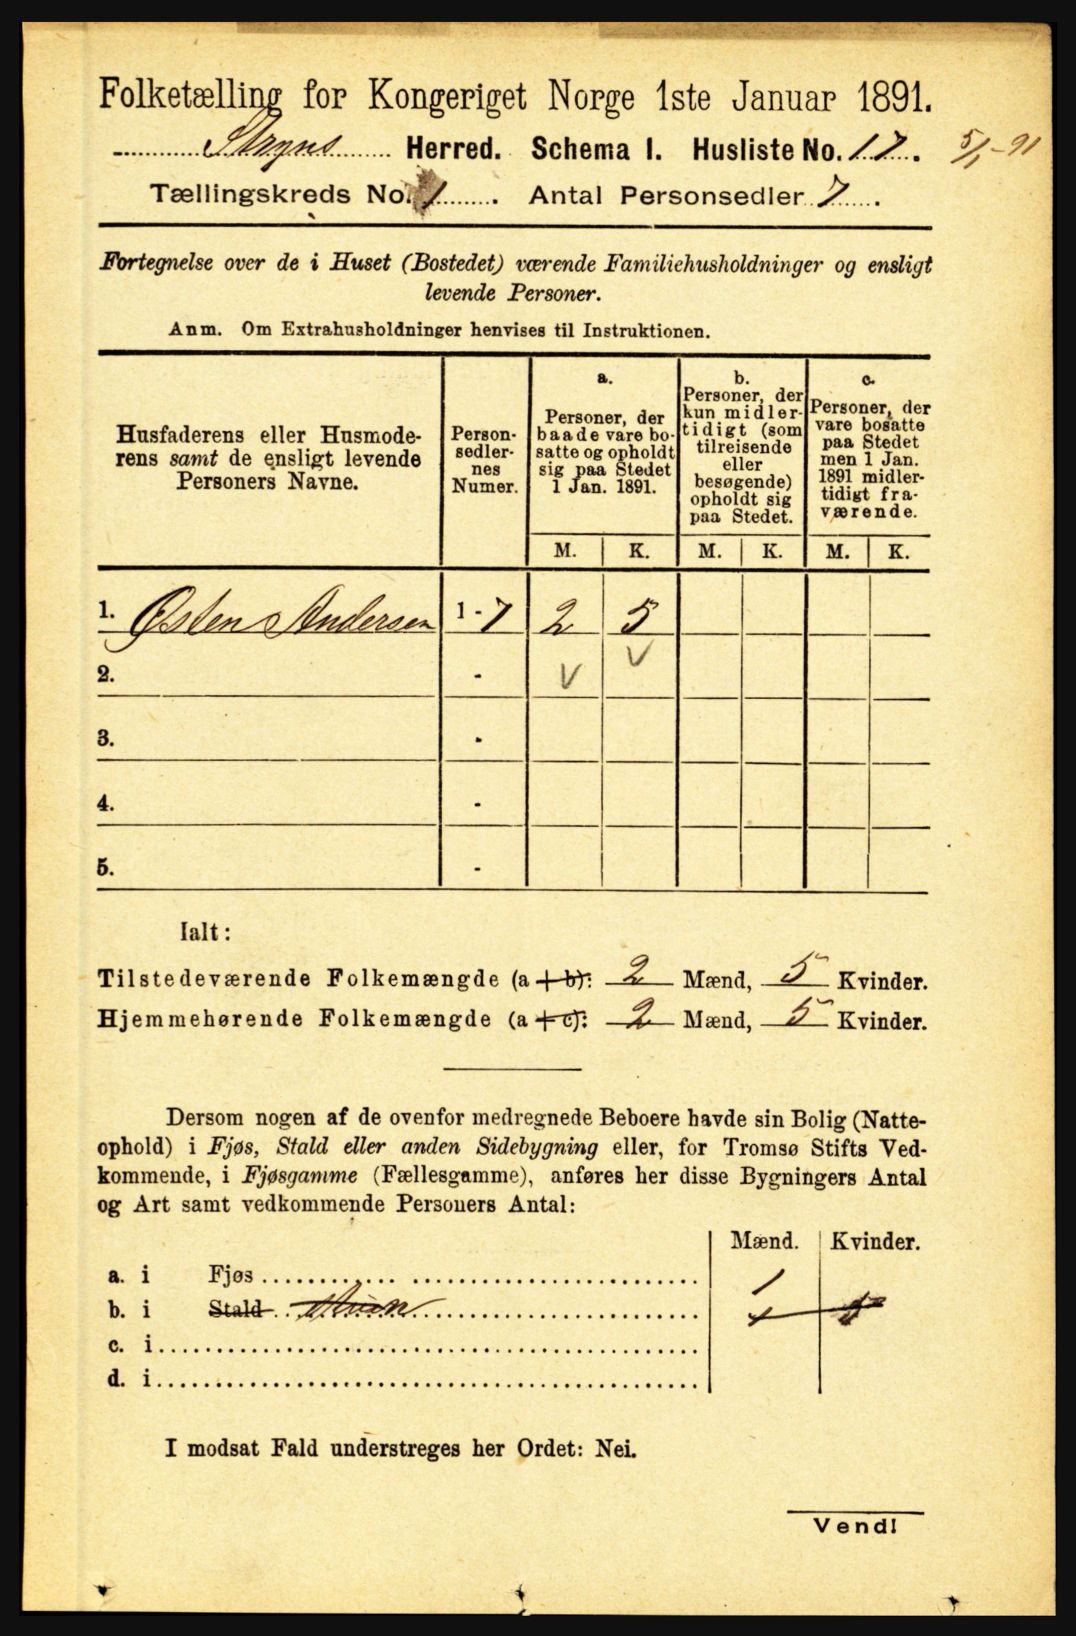 Folketælling for Kongeriget Norge 1ste Januar 1891.
Stryns Herred. Schema I. Husliste No. 17. 5/1-91
Tællingskreds No. 1. Antal Personsedler 7.
Fortegnelse over de i Huset (Bostedet) værende Familiehusholdninger og ensligt
levende Personer.
Anm. Om Extrahusholdninger henvises til Instruktionen.
Husfaderens eller Husmode-
rens samt de ensligt levende
Personers Navne.
Person-
sedler-
nes
Numer.
a.
Personer, der
baade vare bo-
satte og opholdt
sig paa Stedet
1 Jan. 1891.
b.
Personer, der
kun midler-
tidigt (som
tilreisende
eller
besøgende)
opholdt sig
paa Stedet.
c.
Personer, der
vare bosatte
paa Stedet
men 1 Jan.
1891 midler-
tidigt fra-
værende.
M. K. M. K. M. K.
1. Østen Andersen 1-7 2 5
2. - V V
3. -
4. -
5. -
Ialt:
Tilstedeværende Folkemængde (a + b): 2 Mænd, 5 Kvinder.
Hjemmehørende Folkemængde (a + c): 2 Mænd, 5 Kvinder.
Dersom nogen af de ovenfor medregnede Beboere havde sin Bolig (Natte-
ophold) i Fjøs, Stald eller anden Sidebygning eller, for Tromsø Stifts Ved-
kommende, i Fjøsgamme (Fællesgamme), anføres her disse Bygningers Antal
og Art samt vedkommende Personers Antal:
Mænd. Kvinder.
a. i Fjøs 1
b. i Stald
c. i
d. i
I modsat Fald understreges her Ordet: Nei.
Vend!